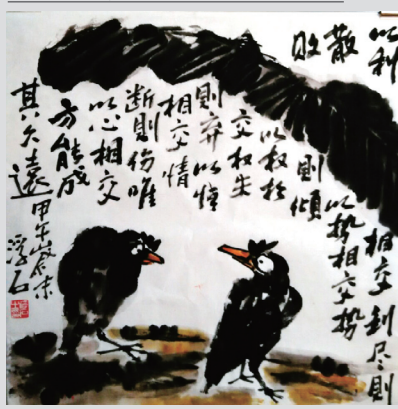 以利
相交利尽則
散
以势相交势
敗
則傾
以权相
交权失
則弃以情
相交情
断則傷唯
以心相交
方能成
其久遠
甲午岁末
浮石